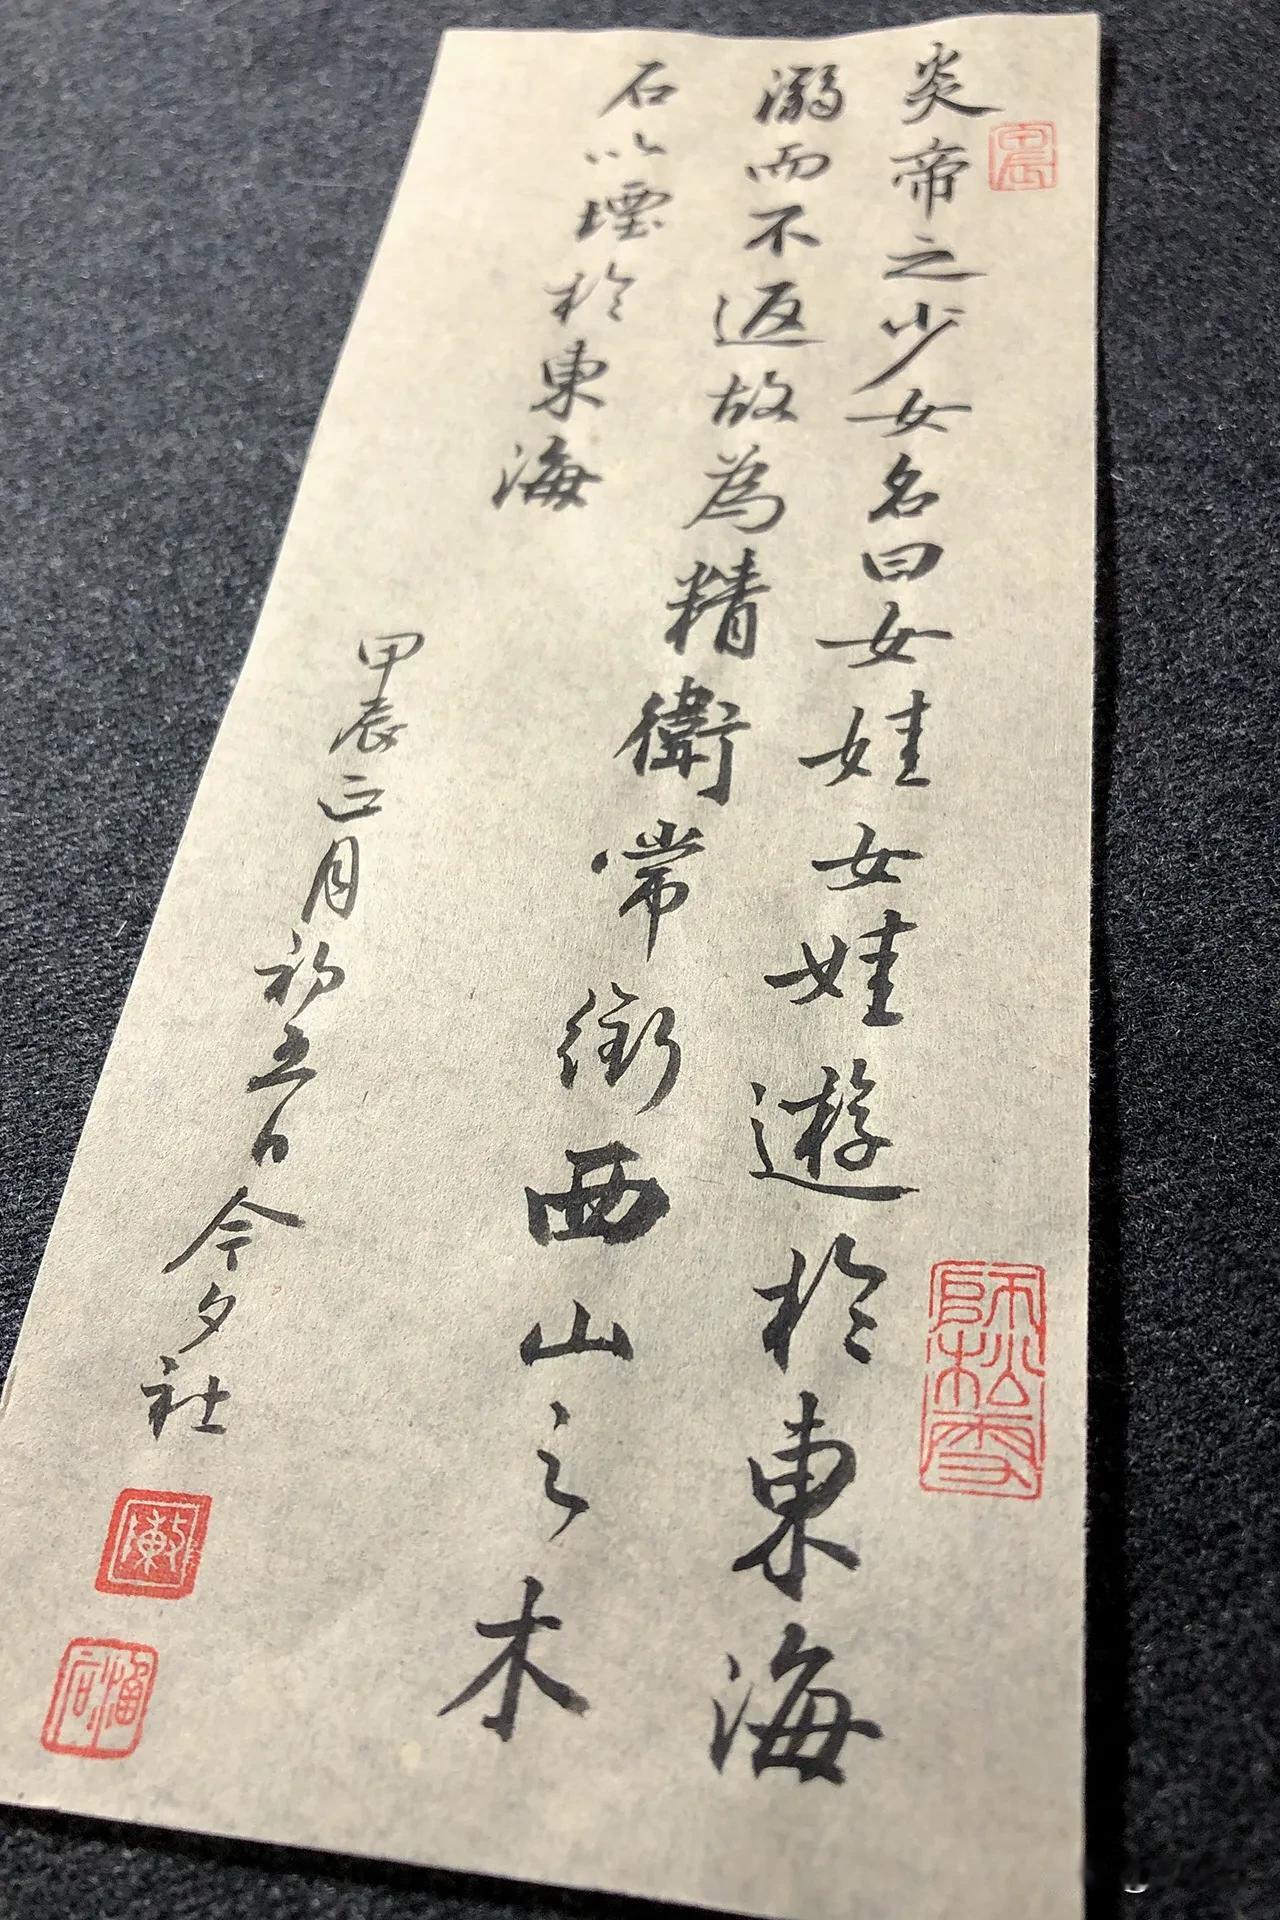 炎帝之少女名曰女娃女娃遊於東海
溺而不返故為精衛常銜西山之木
石以堙於東海
甲辰正月初五日今夕社